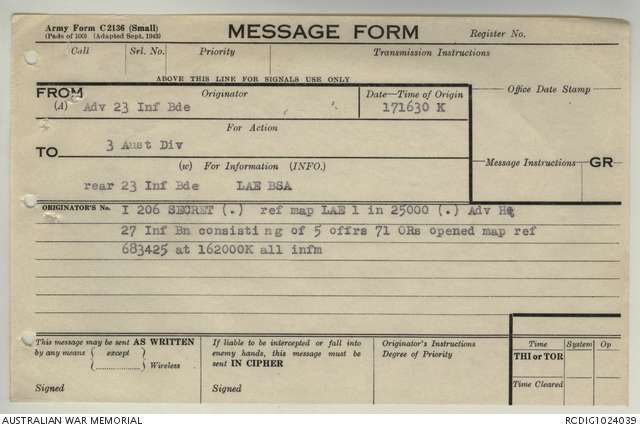 Army Form C2136 (Small)
(Pads of 100) (Adapted Sept. 1943)
MESSAGE FORM
Register No.
Call Srl. No. Priority Transmission Instructions
ABOVE THIS LINE FOR SIGNALS USE ONLY
FROM Originator Date—Time of Origin Office Date Stamp
(A) Adv 23 Inf Bde 171630 K
For Action
TO 3 Aust Div
(w) For Information (INFO.) Message Instructions GR
rear 23 Inf Bde LAE BSA
ORIGINATOR'S No. I 206 SECRET (.) ref map LAE 1 in 25000 (.) Adv HQ
27 Inf Bn consisting of 5 offrs 71 ORs opened map ref
683425 at 162000K all infm
This message may be sent AS WRITTEN
by any means ( except ) Wireless
Signed
If liable to be intercepted or fall into
enemy hands, this message must be
sent IN CIPHER
Signed
Originator's Instructions
Degree of Priority
Time System Op
THI or TOR
Time Cleared
AUSTRALIAN WAR MEMORIAL RCDIG1024039